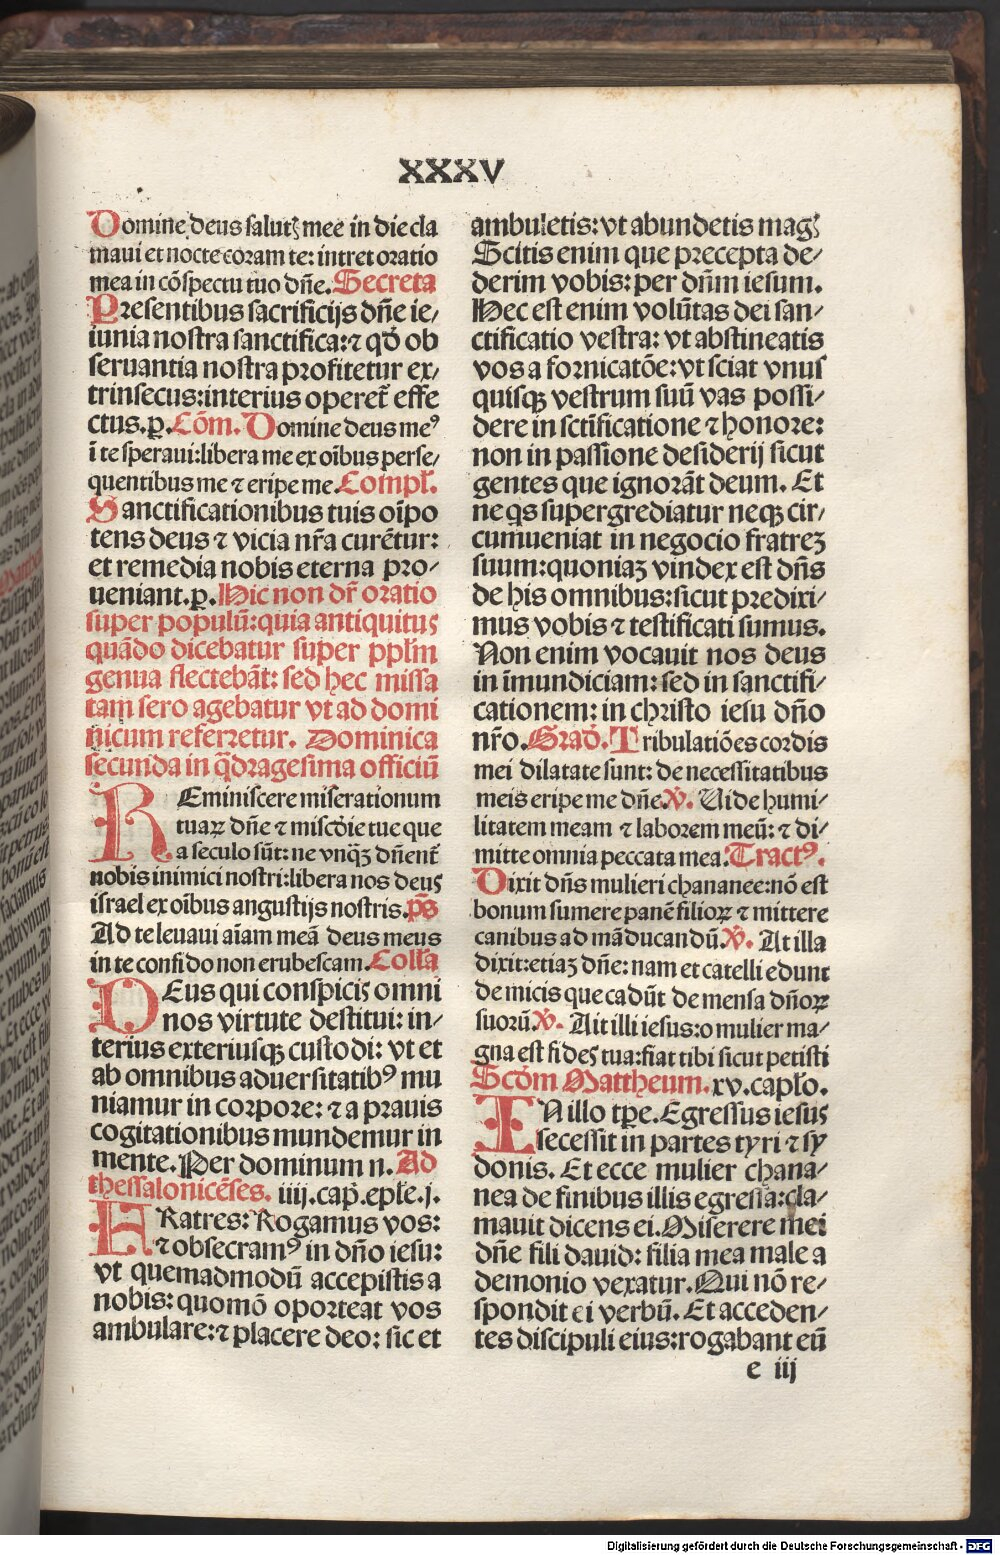 XXXV
Domine deus salutꝭ mee in die cla
maui et nocte coram te: intret oratio
mea in cõspectu tuo dñe. Secreta
Presentibus sacrificijs dñe ie⸗
iunia nostra sanctifica: ⁊ qd̾ ob
seruantia nostra profitetur ex⸗
trinsecus: interius operet̃ effe
ctus. ꝑ. Cõm. Domine deus meꝰ
ĩ te speraui: libera me ex oĩbus perse⸗
quentibus me ⁊ eripe me. Compl̃.
Sanctificationibus tuis oĩpo
tens deus ⁊ vicia nr̃a curẽtur:
et remedia nobis eterna pro⸗
ueniant. ꝑ. Hic non dr̃ oratio
super populũ: quia antiquitus
quãdo dicebatur super pplm̃
genua flectebãt: sed hec missa
tam sero agebatur vt ad domi
nicum referretur. Dominica
secunda in q̃dragesima officiũ
REminiscere miserationum
tuaꝝ dñe ⁊ miscdi̾e tue que
a seculo sũt: ne vnqꝫ̃ dñent̃
nobis inimici nostri: libera nos deus
israel ex oĩbus angustijs nostris. p̃s
Ad te leuaui aĩam meã deus meus
in te confido non erubescam. Coll̃a
DEus qui conspicis omni
nos virtute destitui: in⸗
terius exteriusqꝫ custodi: vt et
ab omnibus aduersitatibꝰ mu
niamur in corpore: ⁊ a prauis
cogitationibus mundemur in
mente. Per dominum n. Ad
thessalonicẽses. iiij. cap̃. epl̃e. j.
FRatres: Rogamus vos:
⁊ obsecramꝰ in dño iesu:
vt quemadmodũ accepistis a
nobis: quomõ oporteat vos
ambulare: ⁊ placere deo: sic et
ambuletis: vt abundetis magꝭ
Scitis enim que precepta de⸗
derim vobis: per dñm iesum.
Hec est enim volũtas dei san⸗
ctificatio vestra: vt abstineatis
vos a fornicatõe: vt sciat vnus
quisqꝫ vestrum suũ vas possi⸗
dere in sctĩficatione ⁊ honore:
non in passione desiderij sicut
gentes que ignorãt deum. Et
ne qs̾ supergrediatur neqꝫ cir⸗
cumueniat in negocio fratreꝫ
suum: quoniaꝫ vindex est dñs
de his omnibus: sicut predixi⸗
mus vobis ⁊ testificati sumus.
Non enim vocauit nos deus
in ĩmundiciam: sed in sanctifi⸗
cationem: in christo iesu dño
nr̃o. Grad̾. Tribulatiões cordis
mei dilatate sunt: de necessitatibus
meis eripe me dñe. ℣. Uide humi⸗
litatem meam ⁊ laborem meũ: ⁊ di⸗
mitte omnia peccata mea. Tractꝰ.
Dixit dñs mulieri chananee: nõ est
bonum sumere panẽ filioꝝ ⁊ mittere
canibus ad mãducandũ. ℣. At illa
dixit: etiaꝫ dñe: nam et catelli edunt
de micis que cadũt de mensa dñoꝝ
suorũ ℣. Ait illi iesus: o mulier ma⸗
gna est fides tua: fiat tibi sicut petisti
Scdm̾ Mattheum. xv. capl̃o.
IN illo tp̃e. Egressus iesus
secessit in partes tyri ⁊ sy
donis. Et ecce mulier chana⸗
nea de finibus illis egressa: cla⸗
mauit dicens ei. Miserere mei
dñe fili dauid: filia mea male a
demonio vexatur. Qui nõ re⸗
spondit ei verbũ. Et acceden⸗
tes discipuli eius: rogabant eũ
e iij
Digitalisierung gefördert durch die Deutsche Forschungsgemeinschaft - DFG